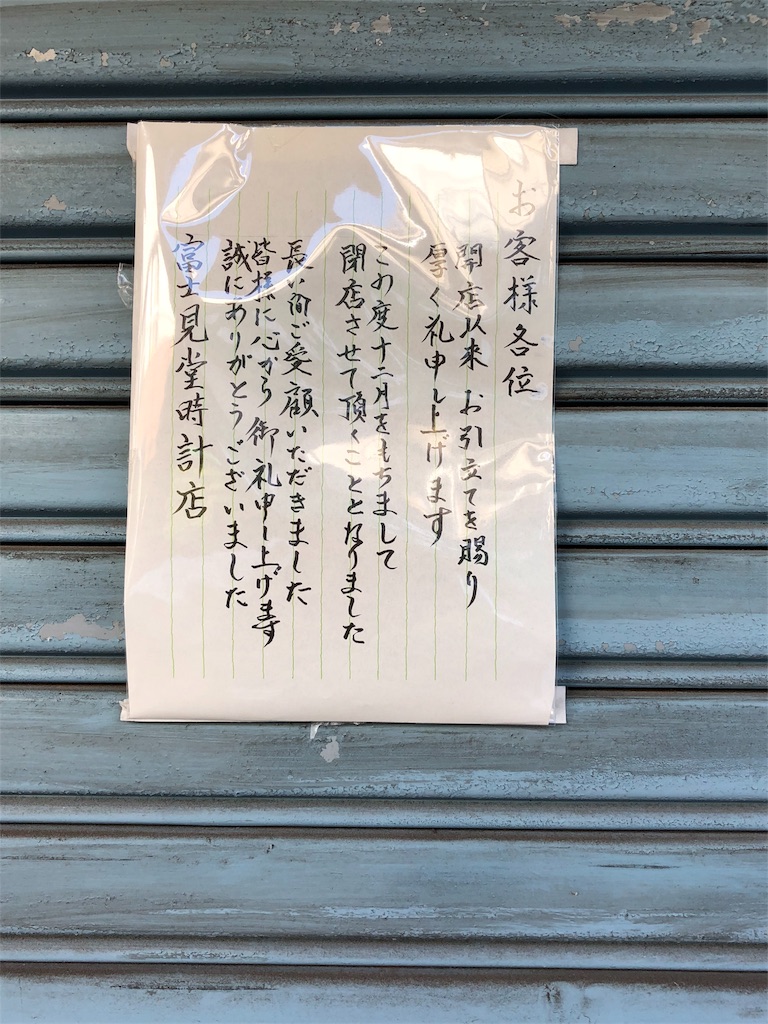 お客様各位
開店以来 お引立てを賜り
厚く礼申し上げます
この度十二月をもちまして
閉店させて頂くこととなりました
長い間ご愛顧いただきました
皆様に心から 御礼申し上げます
誠にありがとうございました
富士見堂時計店